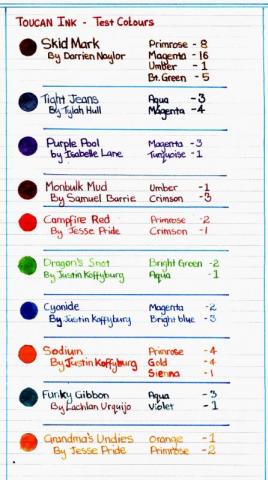 TOUCAN INK - TEST COLOURS
Skid Mark Primrose - 8
By Darrien Naylor Magenta - 16
Umber - 1
Bt. Green - 5
Tight Jeans Aqua - 3
By Tylah Hull Magenta - 4
Purple Pool Magenta - 3
by Isabelle Lane Turquoise - 1
Monbulk Mud Umber - 1
By Samuel Barrie Crimson - 3
Campfire Red Primrose - 2
By Jesse Pride Crimson - 1
Dragon's Snot Bright Green - 2
By Justin Koffyburg Aqua - 1
Cyanide Magenta - 2
By Justin Koffyburg Bright blue - 3
Sodium Primrose - 4
By Justin Koffyburg Gold - 4
Sienna - 1
Funky Gibbon Aqua - 3
By Lachlan Urquijo Violet - 1
Grandma's Undies Orange - 1
By Jesse Pride Primrose - 2